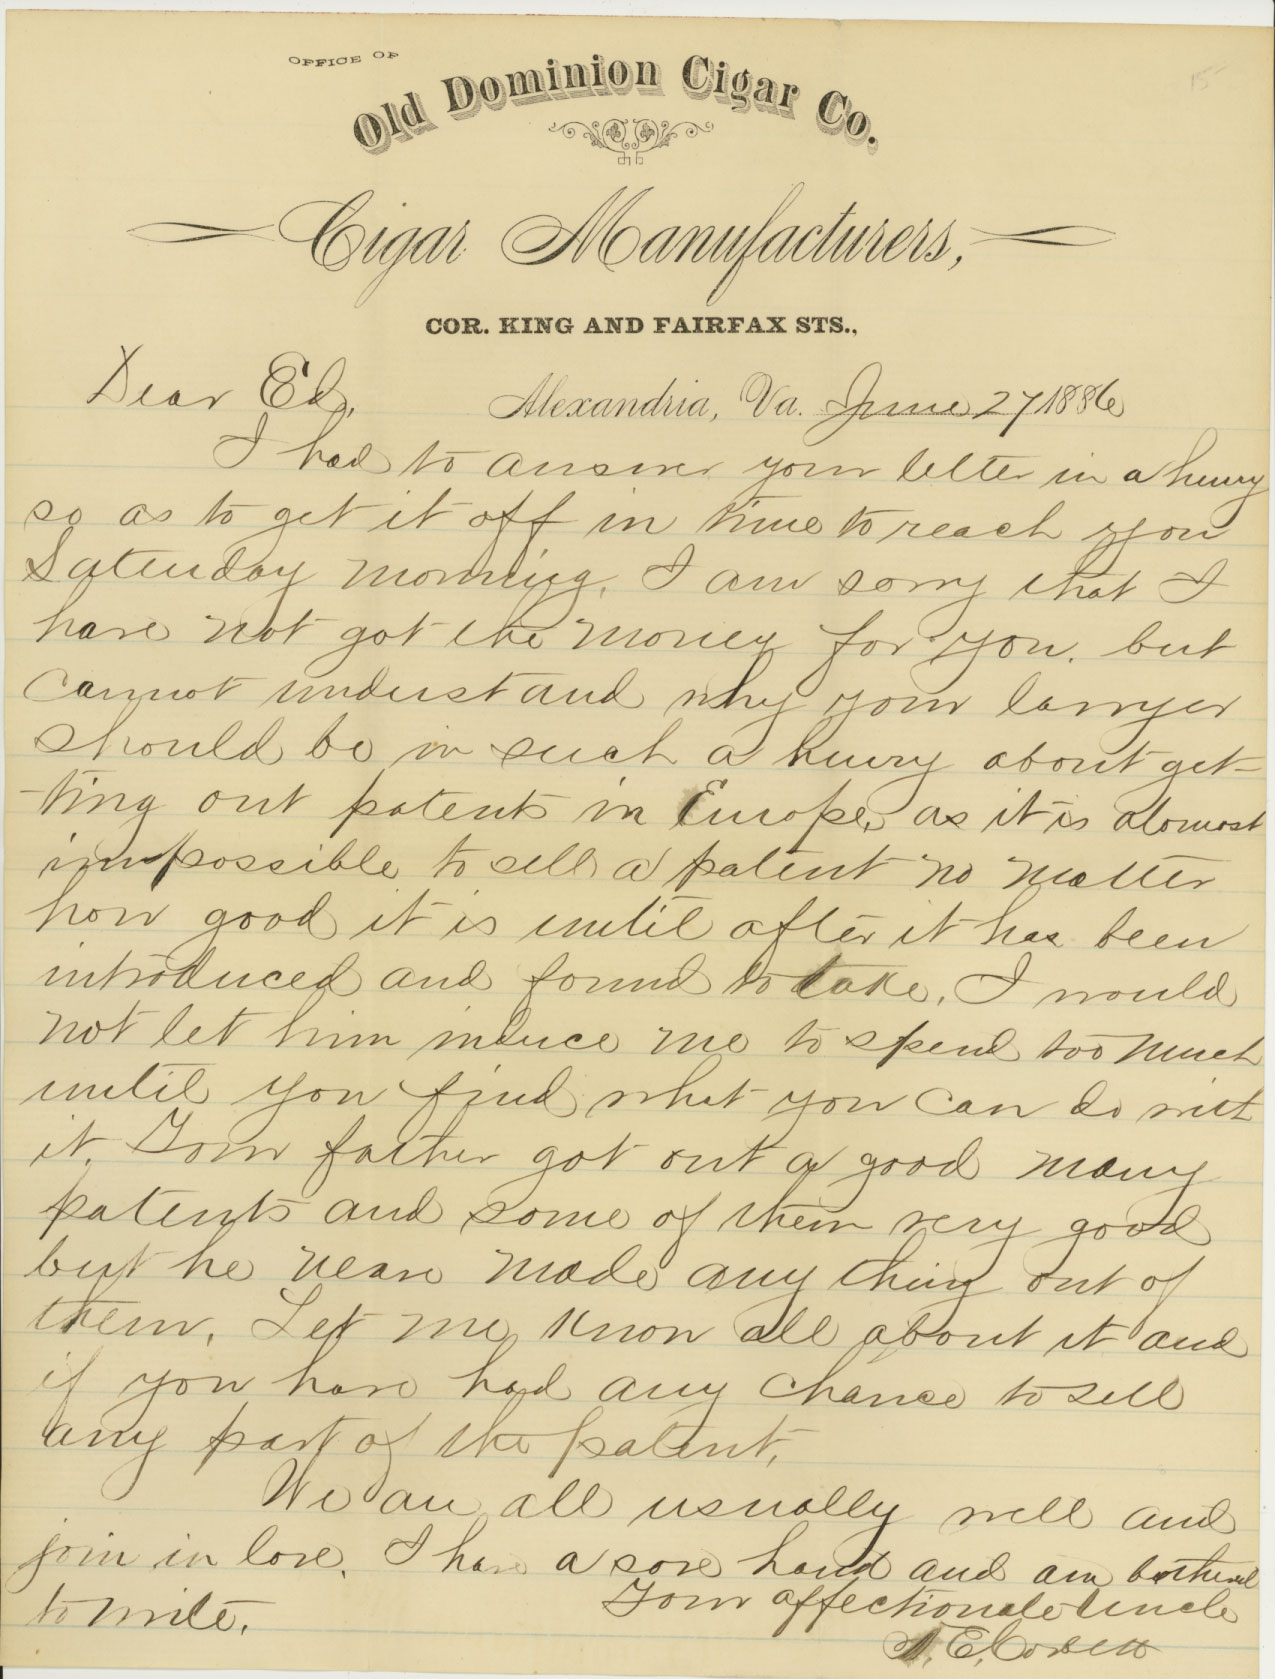 OFFICE OF
Old Dominion Cigar Co.
Cigar Manufacturers,
COR. KING AND FAIRFAX STS.,
Dear Ed, Alexandria, Va. June 27 1886
I had to answer your letter in a hurry
so as to get it off in time to reach you
Saturday morning. I am sorry that I
have not got the money for you. but
cannot understand why your lawyer
should be in such a hurry about get-
-ting out patents in Europe, as it is alomost
impossible to sell a patent no matter
how good it is until after it has been
introduced and found to take. I would
not let him induce me to spend too much
until you find what you can do with
it. Your father got out a good many
patents and some of them very good
but he never made any thing out of
them. Let me know all about it and
if you have had any chance to sell
any part of the patent.
We are all usually well and
join in love. I have a sore hand and am bothered
to write.
Your affectionate Uncle
N. E. Corbett